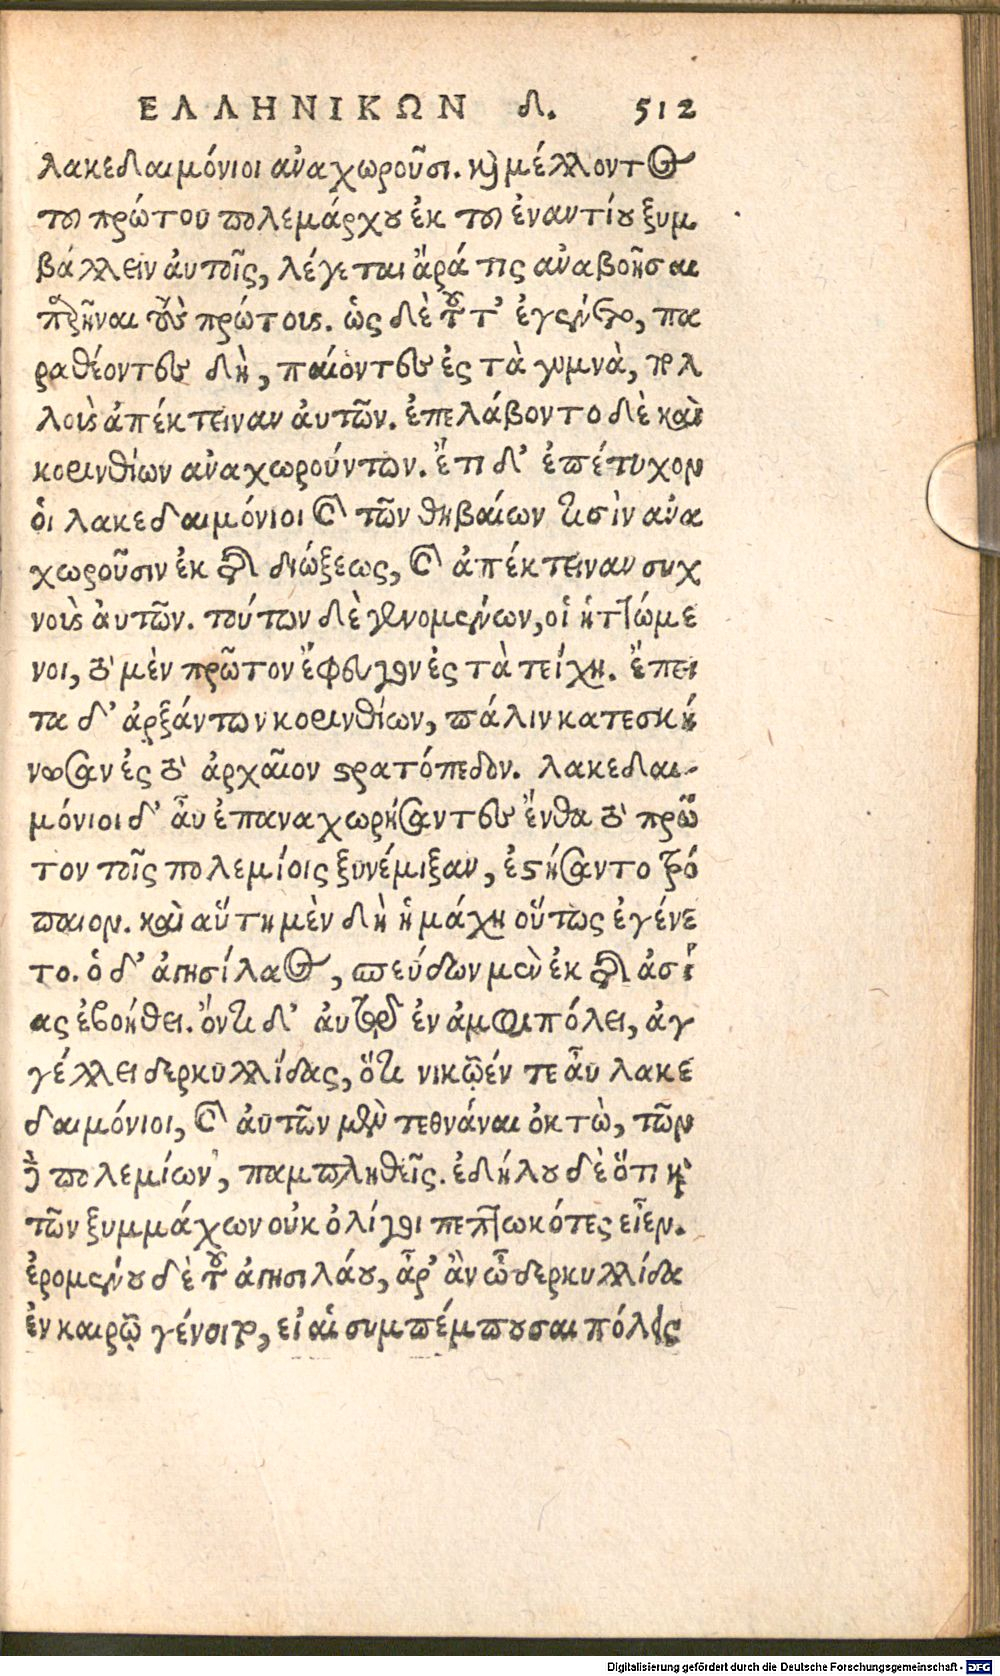 ΕΛΛΗΝΙΚΩΝ δ. 512
λακεδαιμόνιοι ἀναχωροῦσι. καὶ μέλλοντος
τοῦ πρώτου πολεμάρχου ἐκ τοῦ ἐναντίου ξυμ
βάλλειν αὐτοῖς, λέγεται ἄρά τις ἀναβοῆσαι
παρεῖναι τοὺς πρώτους. ὡς δὲ τοῦτ’ ἐγένετο, πα
ραθέοντας δὴ, παίοντες ἐς τὰ γυμνὰ, πολ
λοὺς ἀπέκτειναν αὐτῶν. ἐπελάβοντο δὲ καὶ
κορινθίων ἀναχωρούντων. ἔτι δ’ ἐπέτυχον
οἱ λακεδαιμόνιοι καὶ τῶν θηβαίων τισὶν ἀνα
χωροῦσιν ἐκ τῆς διώξεως, καὶ ἀπέκτειναν συχ
νοὺς αὐτῶν. τούτων δὲ γενομένων, οἱ ἡττώμε
νοι, τὸ μὲν πρῶτον ἔφευγον ἐς τὰ τείχη. ἔπει
τα δ’ ἀρξάντων κορινθίων, πάλιν κατεσκή
νωσαν ἐς τὸ ἀρχαῖον στρατόπεδον. λακεδαι-
μόνιοι δ’ αὖ ἐπαναχωρήσαντες ἔνθα τὸ πρῶ
τον τοῖς πολεμίοις ξυνέμιξαν, ἐστήσαντο τρό
παιον. καὶ αὕτη μὲν δὴ ἡ μάχη οὕτως ἐγένε
το. ὁ δ’ ἀγησίλαος, σπεύδων μὲν ἐκ τῆς ἀσί
ας ἐβοήθει. ὄντι δ’ αὐτῷ ἐν ἀμφιπόλει, ἀγ
γέλλει δερκυλλίδας, ὅτι νικῷέν τε αὖ λακε
δαιμόνιοι, καὶ αὐτῶν μὲν τεθνάναι ὀκτὼ, τῶν
δὲ πολεμίων, παμπληθεῖς. ἐδήλου δὲ ὅτι καὶ
τῶν ξυμμάχων οὐκ ὀλίγοι πεπτωκότες εἶεν.
ἐρομένου δὲ τοῦ ἀγησιλάου, ἆρ’ ἂν ὦ δερκυλλίδα
ἐν καιρῷ γένοιτο, εἰ αἱ συμπέμπουσαι πόλεις
Digitalisierung gefördert durch die Deutsche Forschungsgemeinschaft - DFG